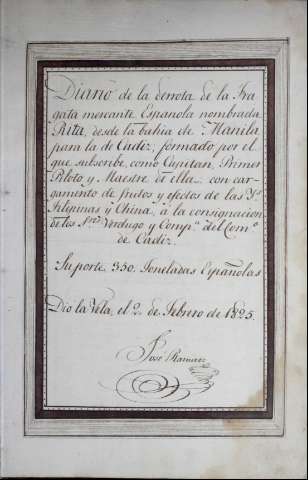 Diario de la derrota de la Fra
gata mercante Española nombrada
Rita, desde la bahia de Manila
para la de Cadiz, formado por el
que subscribe como Capitan, Primer
Piloto y Maestre de ella, con car-
gamento de frutos y efectos de las Ys
Filipinas y China, à la consignacion
de los Sres Verdugo y Compa del Como
de Cadiz.
Suporte 350. Toneladas Españolas
Dio la Vela el 2 de Febrero de 1825.
José Ramirez